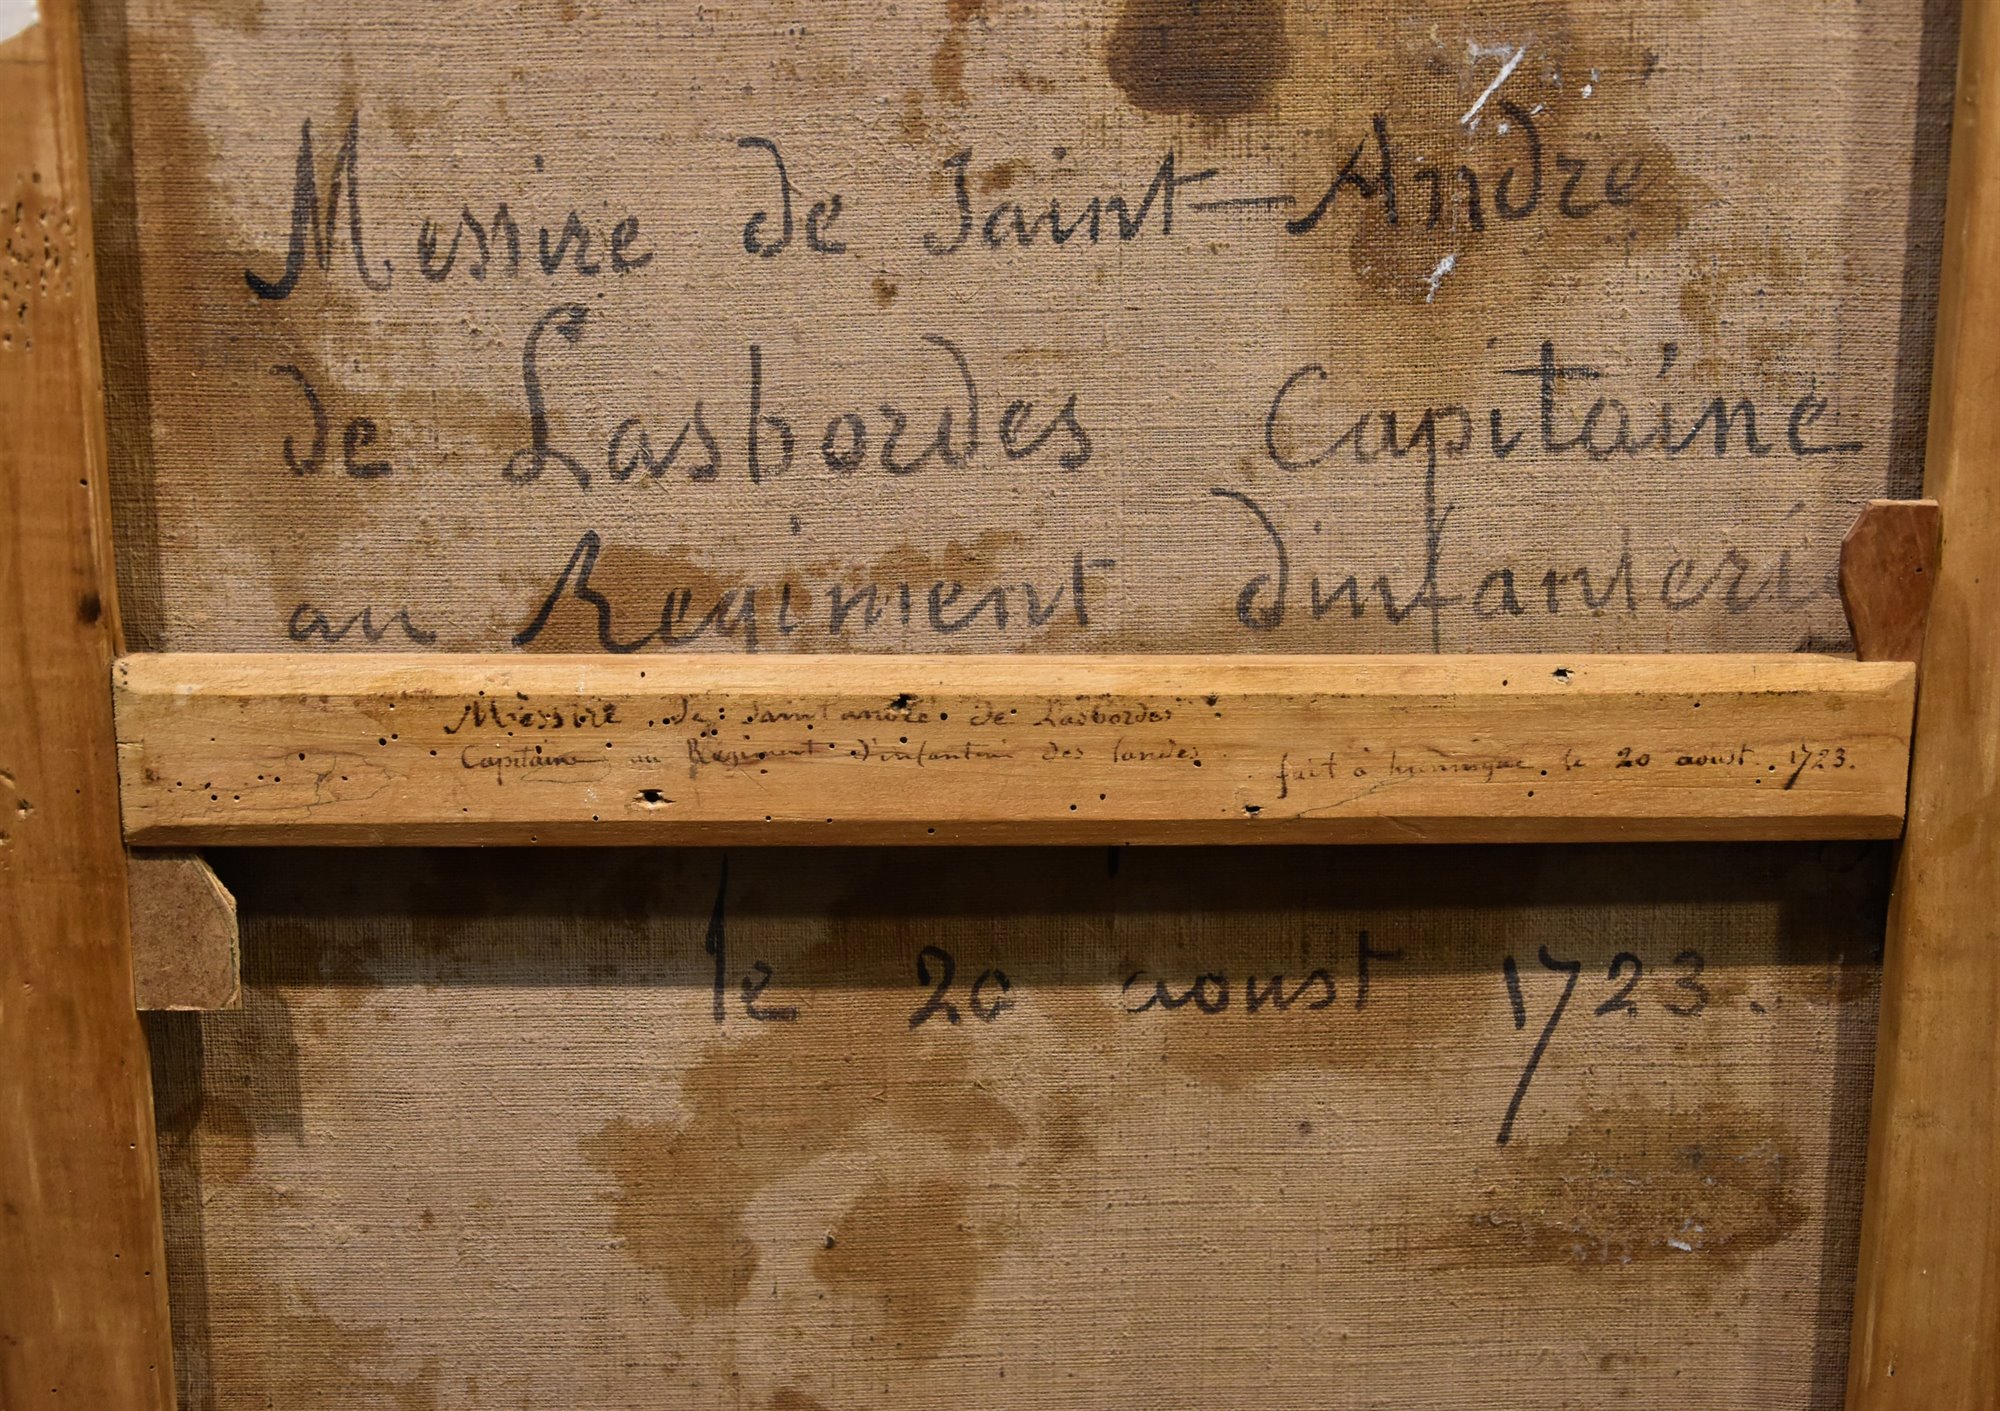 Messire de Saint-André
de Lasbordes Capitaine
au Regiment dinfanterie
Messire de Saint andré de Lasbordes
Capitaine au Regiment d'infanterie des landes fait à huningue le 20 aoust 1723.
le 20 aoust 1723.